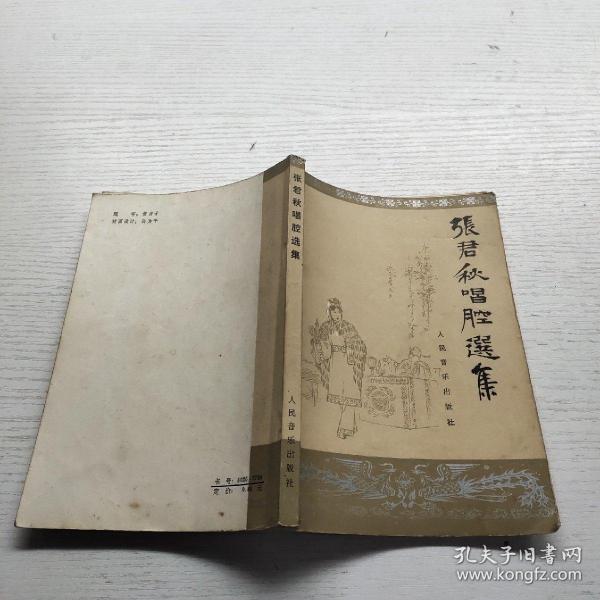 張君秋唱腔選集
人民音乐出版社
张君秋唱腔选集
人民音乐出版社
书号:
定价:
孔夫子旧书网
www.kongfz.com